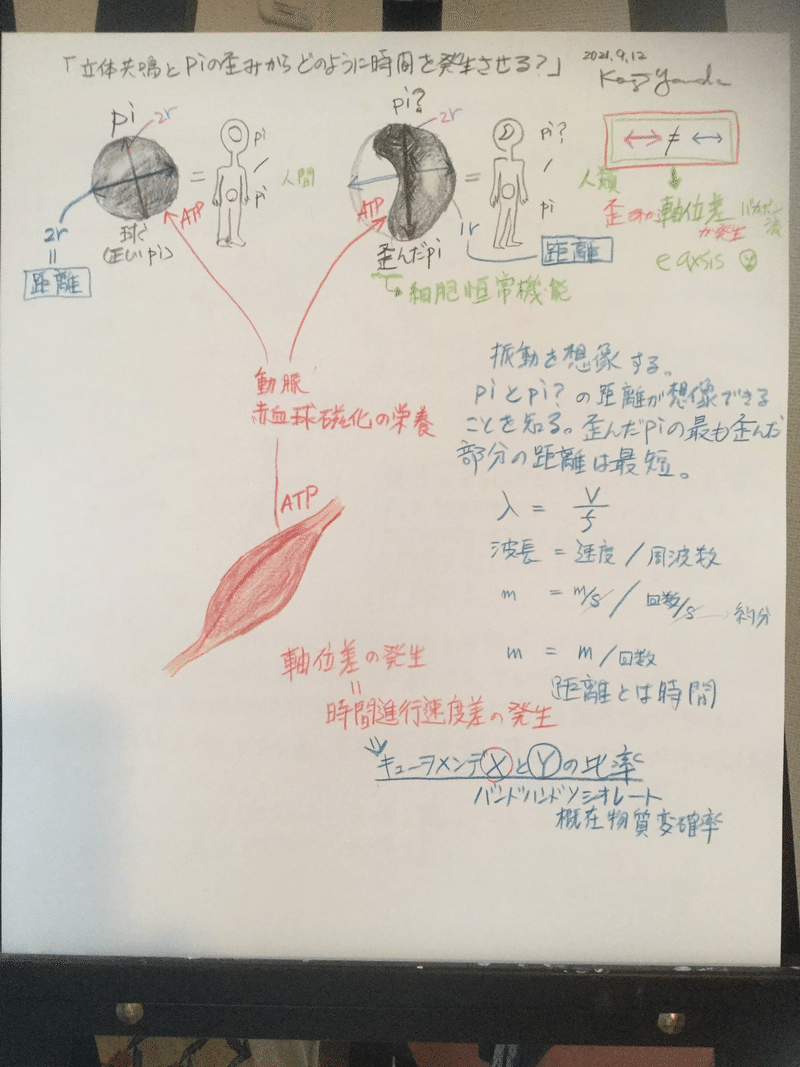 「立体共鳴とPiの歪みからどのように時間を発生させる?」
2021.9.12
pi
2r
pi
/
pi
人間
ATP
2r
=
距離
球
(正しいpi)
pi?
2r
pi?
/
pi
人類
ATP
歪んだpi
距離
細胞恒常機能
≠
歪みか軸位差
が発生
e axsis
動脈
赤血球磁化の栄養
ATP
振動を想像する。
piとpi?の距離が想像できる
ことを知る。歪んだpiの最も歪んだ
部分の距離は最短。
λ = V/f
波長 = 速度 / 周波数
m = m/s / 回数/s 約分
m = m/回数
距離とは時間
軸位差の発生
=
時間進行速度差の発生
キューヲメンデXとYの比率
バンドハンドソシオレート
概在物質変確率